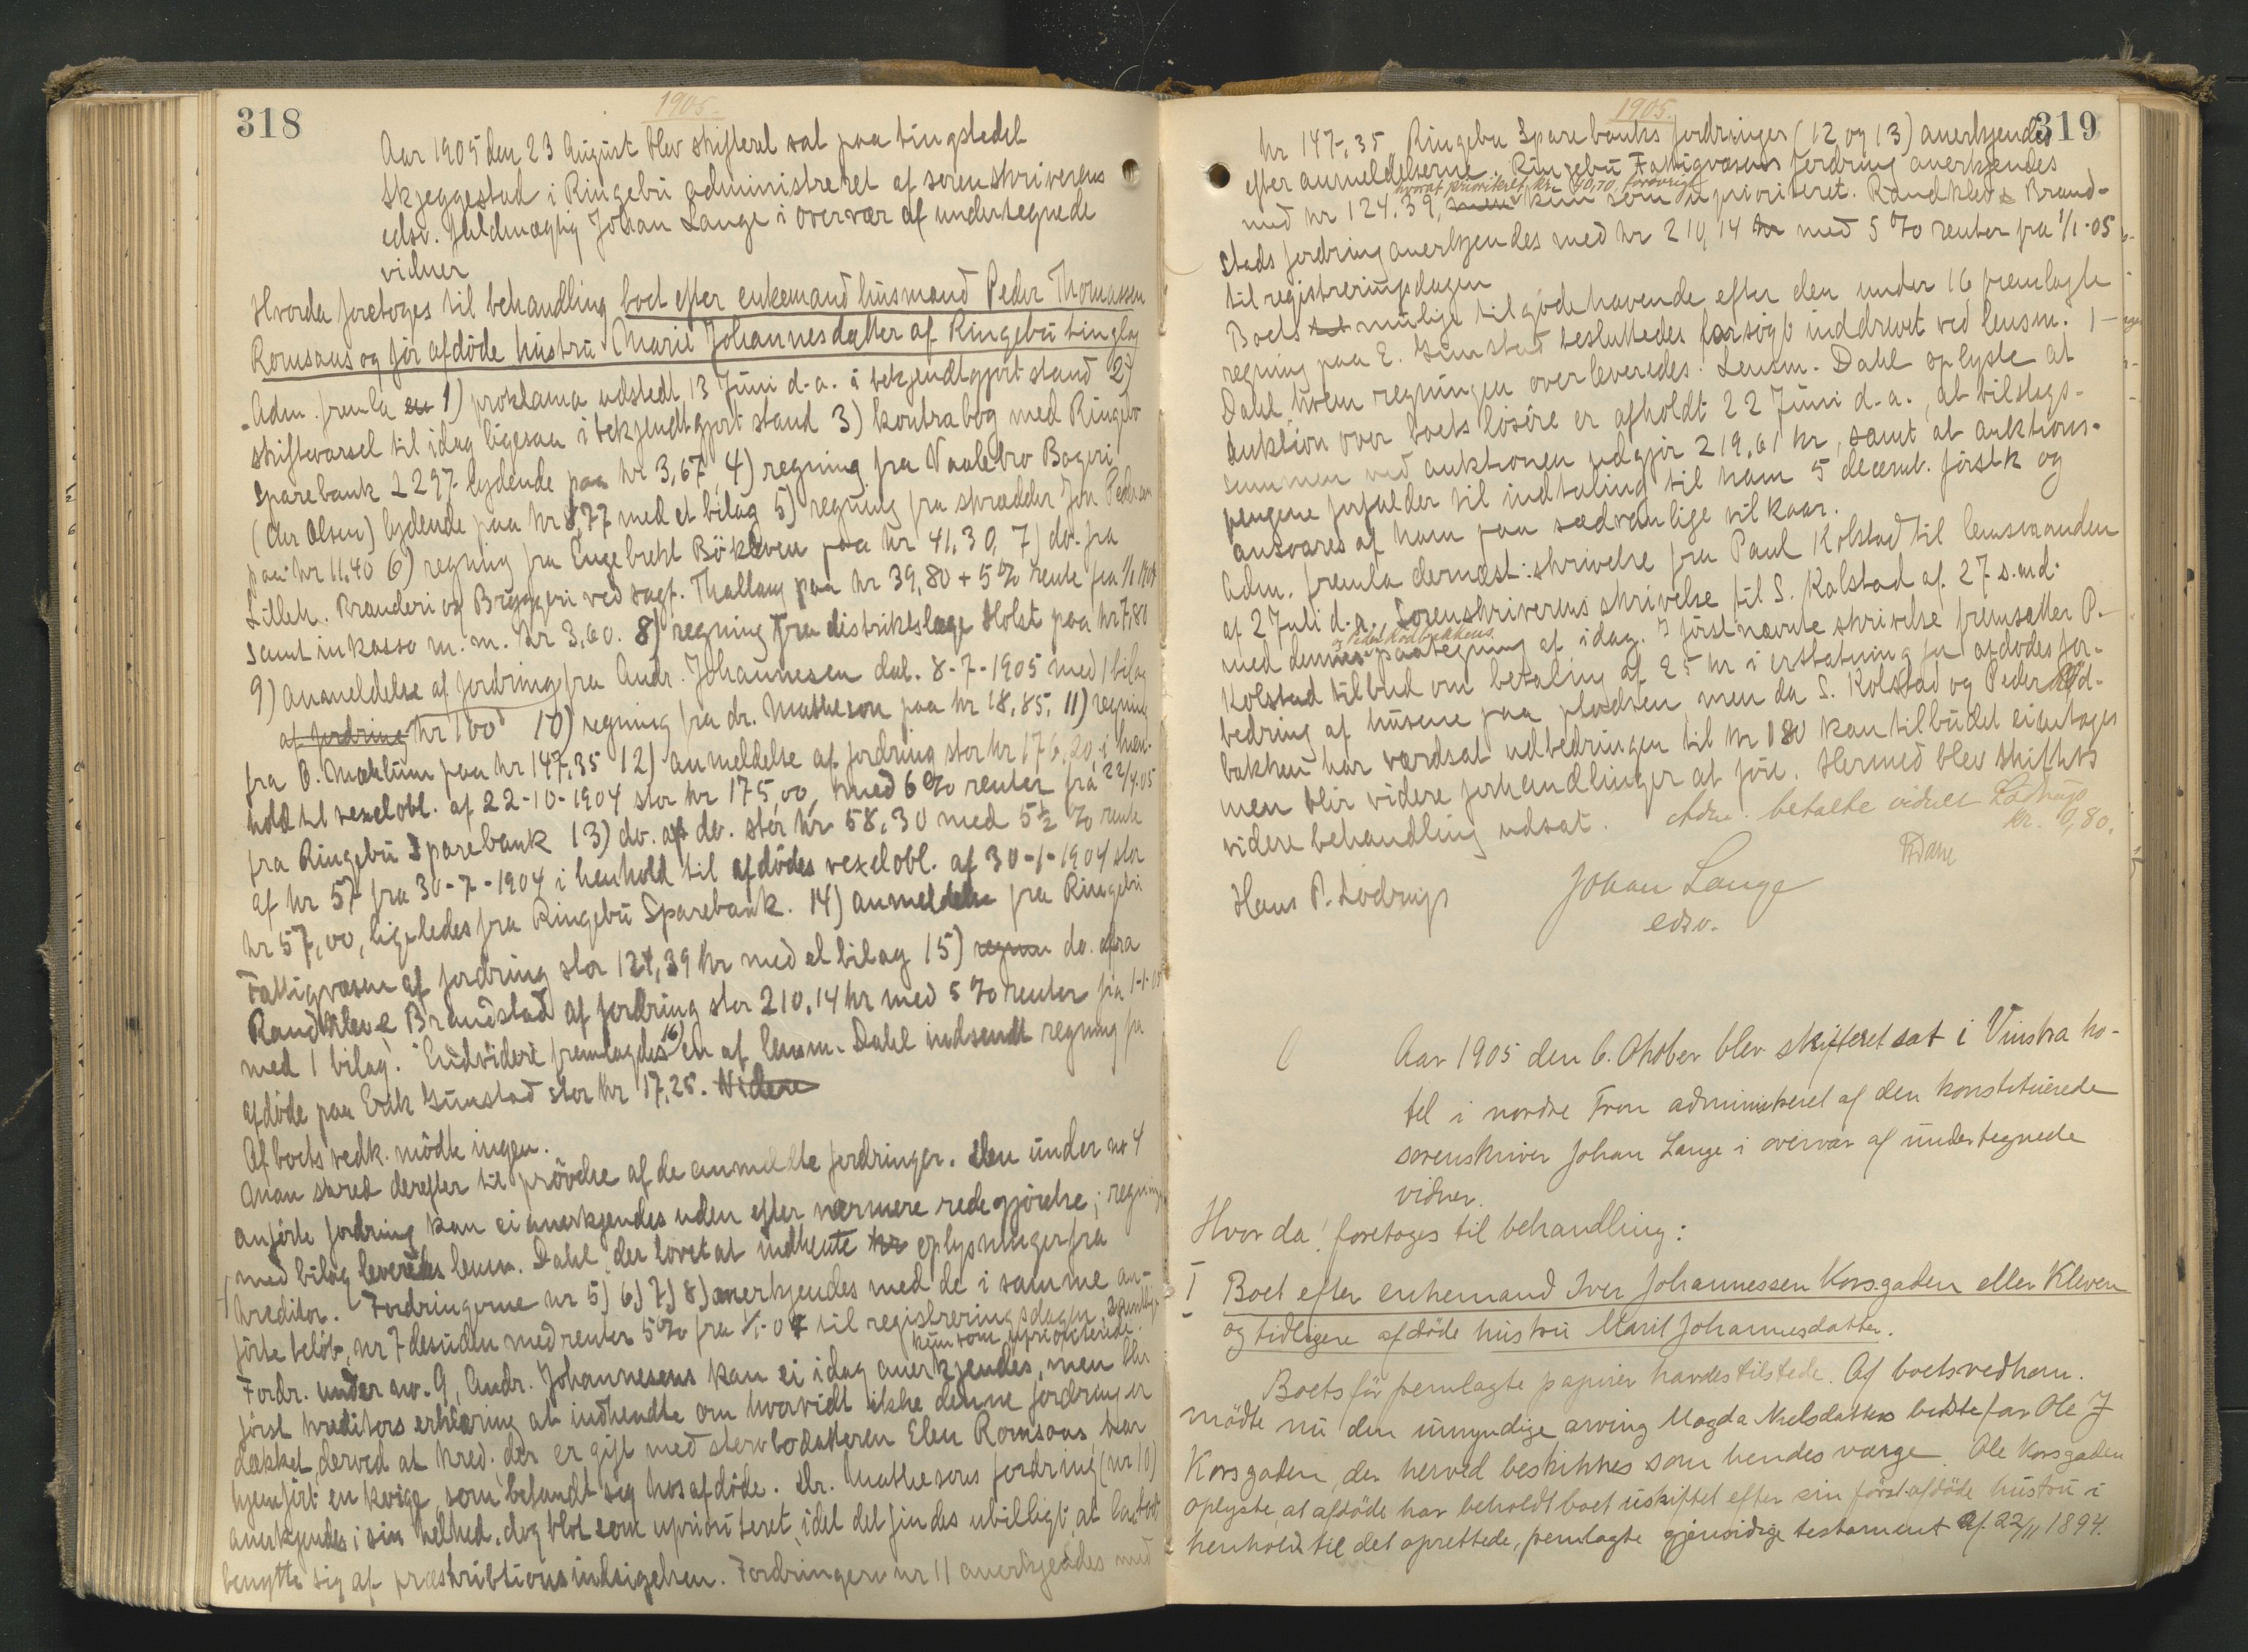 318
1905.
Aar 1905 den 23 August blev skifteret sat paa tingstedet
Skjeggestad i Ringebu administreret af sorenskriverens
edsv. fuldmægtig Johan Lange i overvær af undertegnede
vidner
Hvorda foretoges til behandling boet efter enkemand husmand Peder Thomassen
Romsaas og før afdöde hustru Marit Johannesdatter af Ringebu tinglag
Adm. fremla en 1) proklama udstedt 13 Juni d.a. i bekjendtgjort stand 2)
skiftevarsel til idag ligesaa i bekjendtgjort stand 3) kontrabog med Ringebu
Sparebank 2297 lydende paa kr 3,67, 4) regning fra Vaalebro Bageri
(Chr Olsen) lydende paa kr 8,77 med et bilag 5) regning fra skrædder Jon Pedersen
paa kr 11.40 6) regning fra Engebreht Bökleven paa kr 41,30, 7) do. fra
Lilleh. Brænderi og Bryggeri ved sagf. Thallaug paa kr 39,80 + 5% rente fra 1/1 1904
samt inkasso m.m. kr 3,60. 8) regning fra distriktslæge Holst paa kr 7,80
9) Anmeldelse af fordring fra Andr. Johannesen dat. 8-7-1905 med 1 bilag
af fordring kr 100 10) regning fra dr. Matheson paa kr 18,85, 11) regning
fra O. Mæhlum paa kr 147,35 12) anmeldelse af fordring stor kr 176,20, i hen-
hold til vexelobl. af 22-10-1904 stor kr 175,00, med 6% renter fra 22/4.05
fra Ringebu Sparebank 13) do. af do. stor kr 58,30 med 5½ % rente
af kr 57 fra 30-7-1904 i henhold til afdödes vexelobl. af 30-1-1904 stor
kr 57,00, ligeledes fra Ringebu Sparebank. 14) anmeldelse fra Ringebu
Fattigvæsen af fordring stor 124,39 kr med et bilag 15) regnin do. fra
Randkleve Brandstad af fordring stor 210.14 kr med 5% renter fra 1-1-05
med 1 bilag. Endvidere fremlagdes 16) en af lensm. Dahl indsendt regning fra
afdöde paa Erik Gunstad stor kr 17,25. Videre
Af boets vedk. mödte ingen.
Man skred derefter til prövelse af de anmeldte fordringer. Den under nr 4
anförte fordring kan ei anerkjendes uden efter nærmere redegjörelse; regning
med bilag leveredes lensm. Dahl, der lovet at indhente kr oplysninger fra
kreditor. Fordringerne nr 5) 6) 7) 8) anerkjendes med de i samme an-
förte belöb, nr 7 desuden med renter 5% fra 1/1-04 til registreringsdagen, samtlige
kun som uprioriterede.
Fordr. under no. 9, Andr. Johannesens kan ei idag anerkjendes, men blir
först kreditors erklæring at indhendte om hvorvidt ikke denne fordring er
dækket derved at kred. der er gift med stervbodatteren Elen Romsaas har
hjemfört en kvige, som befandt sig hos afdöde. Dr. Mathesons fordring (nr 10)
anerkjendes i sin helhed, dog blot som uprioriteret, idet det findes ubilligt, at lade boet
benytte sig af præskribtionsindsigelsen. Fordringen nr 11 anerkjendes med
319
1905.
kr 147,35, Ringebu Sparebanks fordringer (12 og 13) anerkjendes
efter anmeldelserne. Ringebu Fattigvæsens fordring anerkjendes
hvoraf prioritert kr. 70,70, forövrigt
med kr 124.39, men kun som uprioriteret. Randkleve Brand-
stads fordring anerkjendes med kr 210,14 kr med 5% renter fra 1/1-05
til registreringsdagen
Boets mulige tilgodehavende efter den under 16 fremlagte
regning paa E. Gunstad besluttedes forsögt inddrevet ved lensm.
Dahl hvem regningen overleveredes. Lensm. Dahl oplyste at
auktion over boets lösöre er afholdt 22 Juni d.a., at tilslags-
summen ved auktionen udgjör 219,61 kr, samt at auktions-
pengene forfalder til indtaling til ham 5 decemb. förstk og
ansvares af ham paa sædvanlige vilkaar.
Adm. fremla dernæst: skrivelse fra Paul Kolstad til lensmanden
af 2 Juli d.a. Sorenskriverens skrivelse til S. Kolstad af 27 s.md.
og Peder Rödbakkens
med dennes paategning af idag. I förstnævnte skrivelse fremsætter P.
Kolstad tilbud om betaling af 25 kr i erstatning for afdödes for-
bedring af husene paa pladsen men da S. Kolstad og Peder Röd-
bakken har værdsat udbedringen til kr 180 kan tilbudet ei antages
men blir videre forhandlinger at före. Hermed blev skiftets
videre behandling udsat. Adm. betalte vidnet Lodrup
kr. 0,80.
Hans P. Lodrup Johan Lange
edsv.
Aar 1905 den 6. Oktober blev skifteret sat i Vinstra ho-
tel i nordre Fron administreret af den konstituerede
sorenskriver Johan Lange i overvær af undertegnede
vidner.
Hvor da foretoges til behandling:
I Boet efter enkemand Iver Johannessen Korsgaden eller Kleven
og tidligere afdöde hustru Marit Johannesdatter.
Boets för fremlagte papirer havdes tilstede. Af boetsvedkom.
mödte nu den umyndige arving Magda Nielsdatters bedstefar Ole J
Korsgaden, der herved beskikkes som hendes værge. Ole Korsgaden
oplyste, at afdöde har beholdt boet uskiftet efter sin först-afdöde hustru i
henhold til det oprettede, fremlagte gjensidige testament af 22/11 1894.